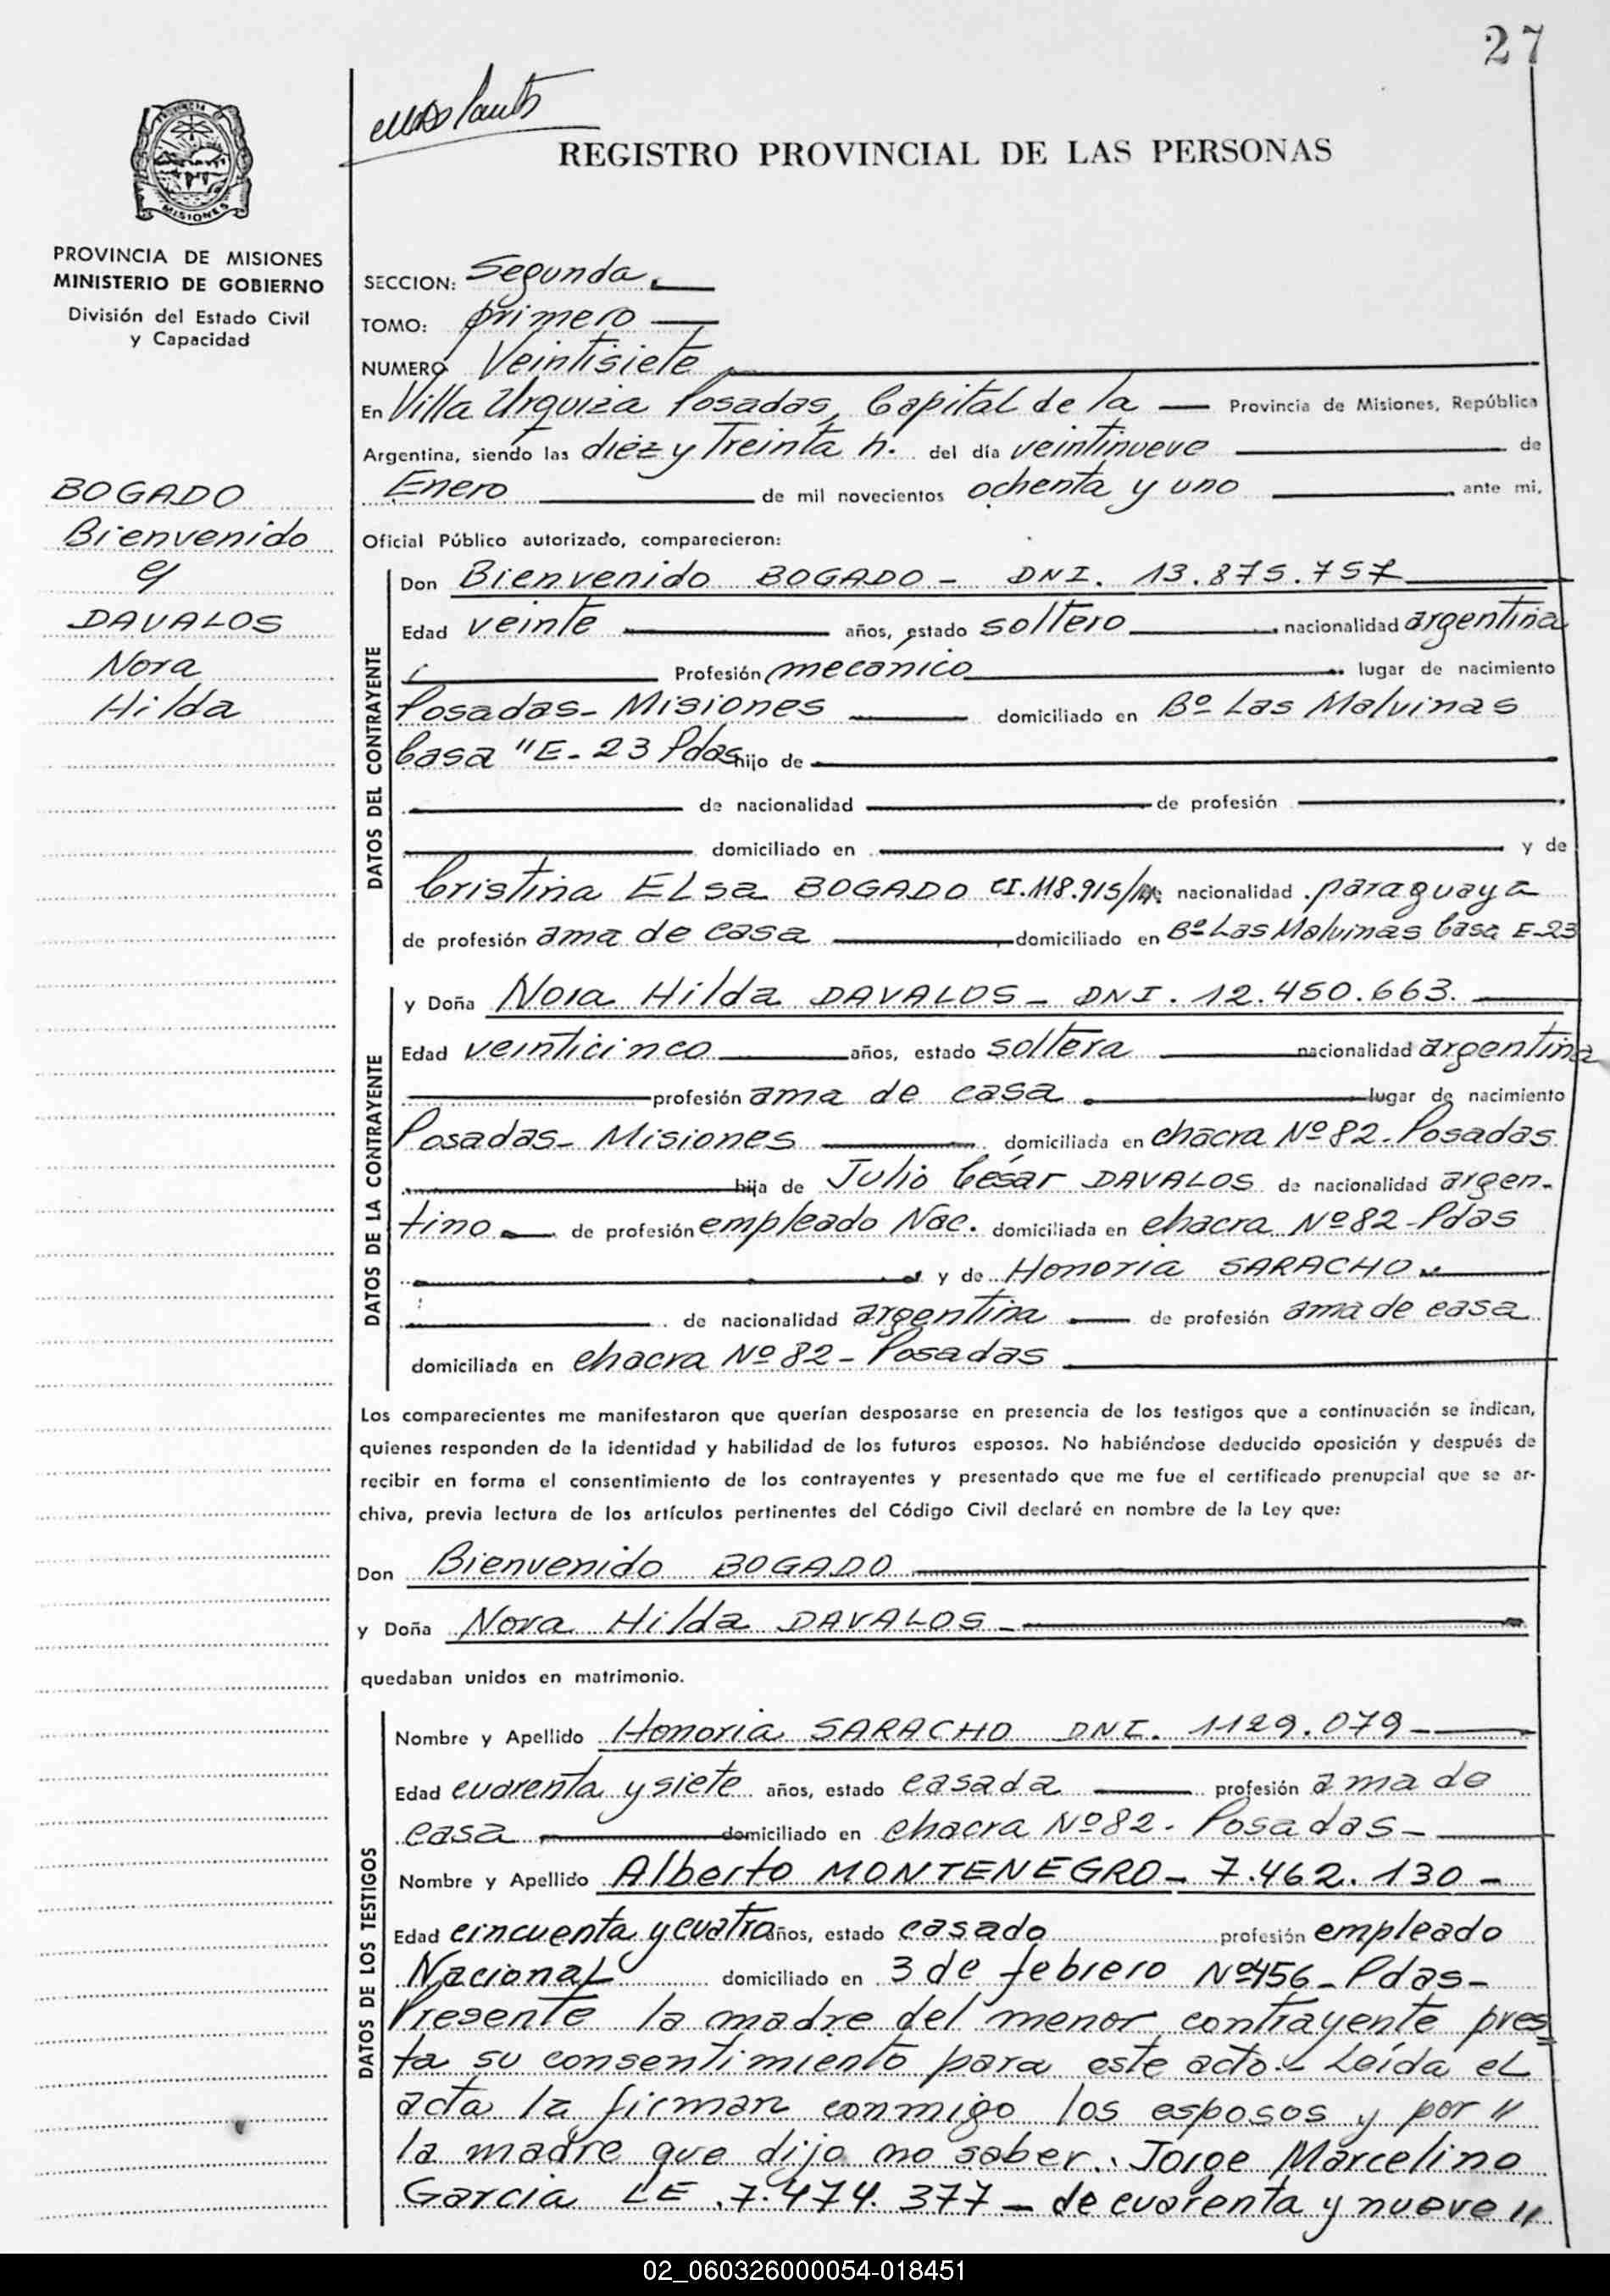 27
REGISTRO PROVINCIAL DE LAS PERSONAS
PROVINCIA
MISIONES
PROVINCIA DE MISIONES
MINISTERIO DE GOBIERNO
División del Estado Civil
y Capacidad
SECCION: Segunda
TOMO: primero
NUMERO Veintisiete
En Villa Urquiza Posadas, Capital de la Provincia de Misiones, República
Argentina, siendo las diez y Treinta h. del día veintinueve de
Enero de mil novecientos ochenta y uno ante mi,
Oficial Público autorizado, comparecieron:
BOGADO
Bienvenido
y
DAVALOS
Nora
Hilda
DATOS DEL CONTRAYENTE
Don Bienvenido BOGADO - DNI. 13.875.757
Edad veinte años, estado soltero nacionalidad argentina
Profesión mecanico lugar de nacimiento
Posadas - Misiones domiciliado en Bº Las Malvinas
Casa "E - 23 Pdas hijo de
de nacionalidad de profesión
domiciliado en y de
Cristina ELsa BOGADO CI. 118.915/ nacionalidad paraguaya
de profesión ama de casa domiciliado en Bº Las Malvinas Casa E-23
DATOS DE LA CONTRAYENTE
y Doña Nora Hilda DAVALOS - DNI. 12.450.663.
Edad veinticinco años, estado soltera nacionalidad argentina
profesión ama de casa lugar de nacimiento
Posadas - Misiones domiciliada en chacra Nº 82 - Posadas
hija de Julio César DAVALOS de nacionalidad argen-
tino de profesión empleado Nac. domiciliada en chacra Nº 82 - Pdas
y de Honoria SARACHO
de nacionalidad argentina de profesión ama de casa
domiciliada en chacra Nº 82 - Posadas
Los comparecientes me manifestaron que querían desposarse en presencia de los testigos que a continuación se indican,
quienes responden de la identidad y habilidad de los futuros esposos. No habiéndose deducido oposición y después de
recibir en forma el consentimiento de los contrayentes y presentado que me fue el certificado prenupcial que se ar-
chiva, previa lectura de los artículos pertinentes del Código Civil declaré en nombre de la Ley que:
Don Bienvenido BOGADO
y Doña Nora Hilda DAVALOS
quedaban unidos en matrimonio.
DATOS DE LOS TESTIGOS
Nombre y Apellido Honoria SARACHO DNI. 1129.079 -
Edad cuarenta y siete años, estado casada profesión ama de
casa domiciliado en chacra Nº 82 - Posadas -
Nombre y Apellido Alberto MONTENEGRO - 7.462.130 -
Edad cincuenta y cuatro años, estado casado profesión empleado
Nacional domiciliado en 3 de febrero Nº 456 - Pdas -
Presente la madre del menor contrayente pres=
ta su consentimiento para este acto - Leída eL
acta la firman conmigo los esposos y por "
la madre que dijo no saber. Jorge Marcelino
Garcia LE. 7.474.377 - de cuarenta y nueve "
02_060326000054-018451